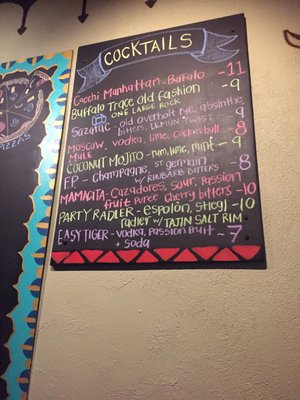 COCKTAILS
Cocchi Manhattan - Buffalo - 11
Buffalo Trace old fashion - 9
ONE LARGE ROCK
Sazarac - old overholt rye, absinthe, - 9
bitters, LEMON TWIST
MOSCOW MULE - vodka, lime, cock'n bull - 8
COCONUT MOJITO - rum, lime, mint - 9
FP - Champagne, st germain - 8
w/ RHUBARB BITTERS
MAMACITA - Cazadores, sour, passion
fruit puree cherry bitters - 10
PARTY RADLER - espolón, stiegl - 10
radler w/ TAJIN SALT RIM
EASY TIGER - vodka, passion fruit - 7
+ soda
PIZZAS